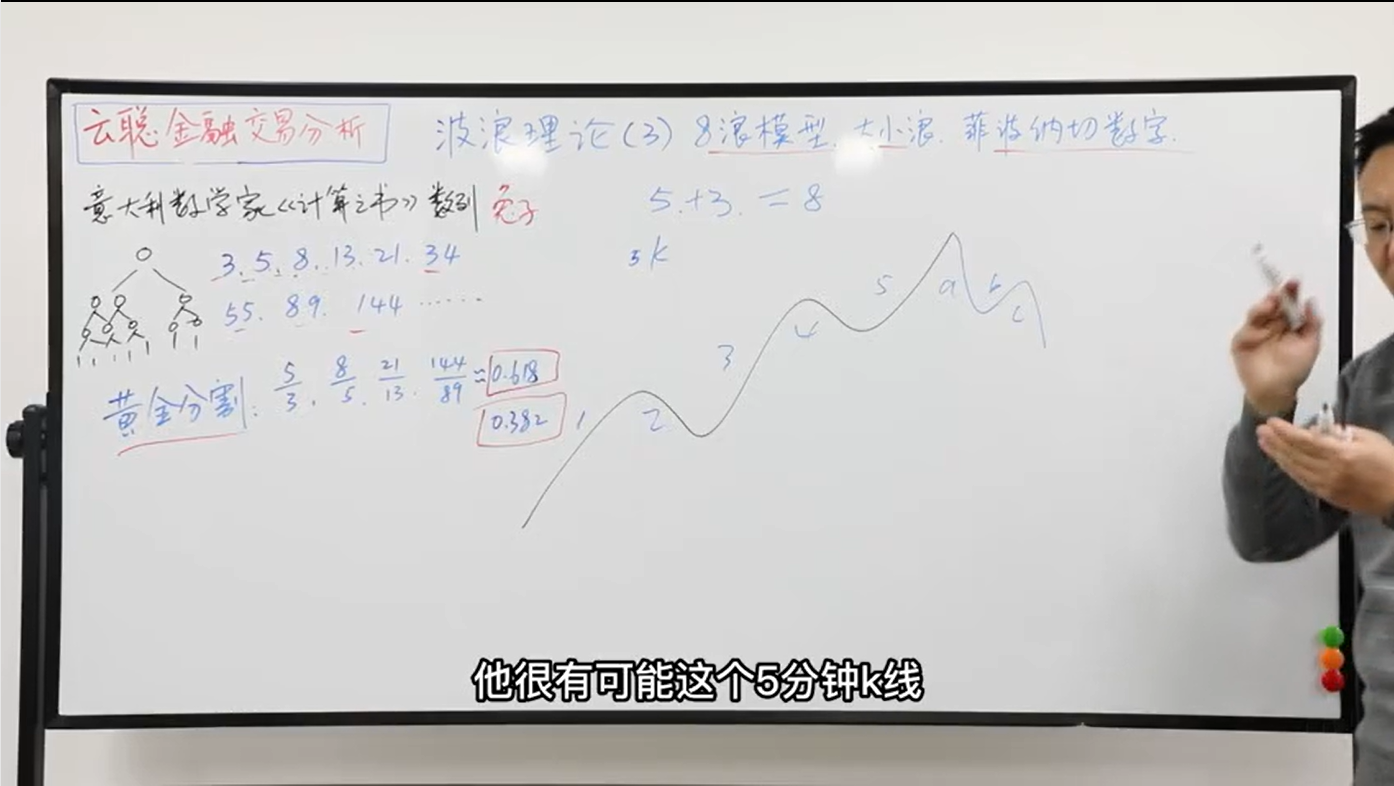 云聪金融交易分析
波浪理论(3) 8浪模型. 大小浪. 菲波纳切数字.
意大利数学家《计算之书》数列 兔子
5.+3. = 8
3. 5. 8. 13. 21. 34
5k
55. 89. 144 ······
黄金分割: 5/3. 8/5. 21/13. 144/89 ≈ 0.618
0.382
1 2 3 4 5 a b c
他很有可能这个5分钟k线